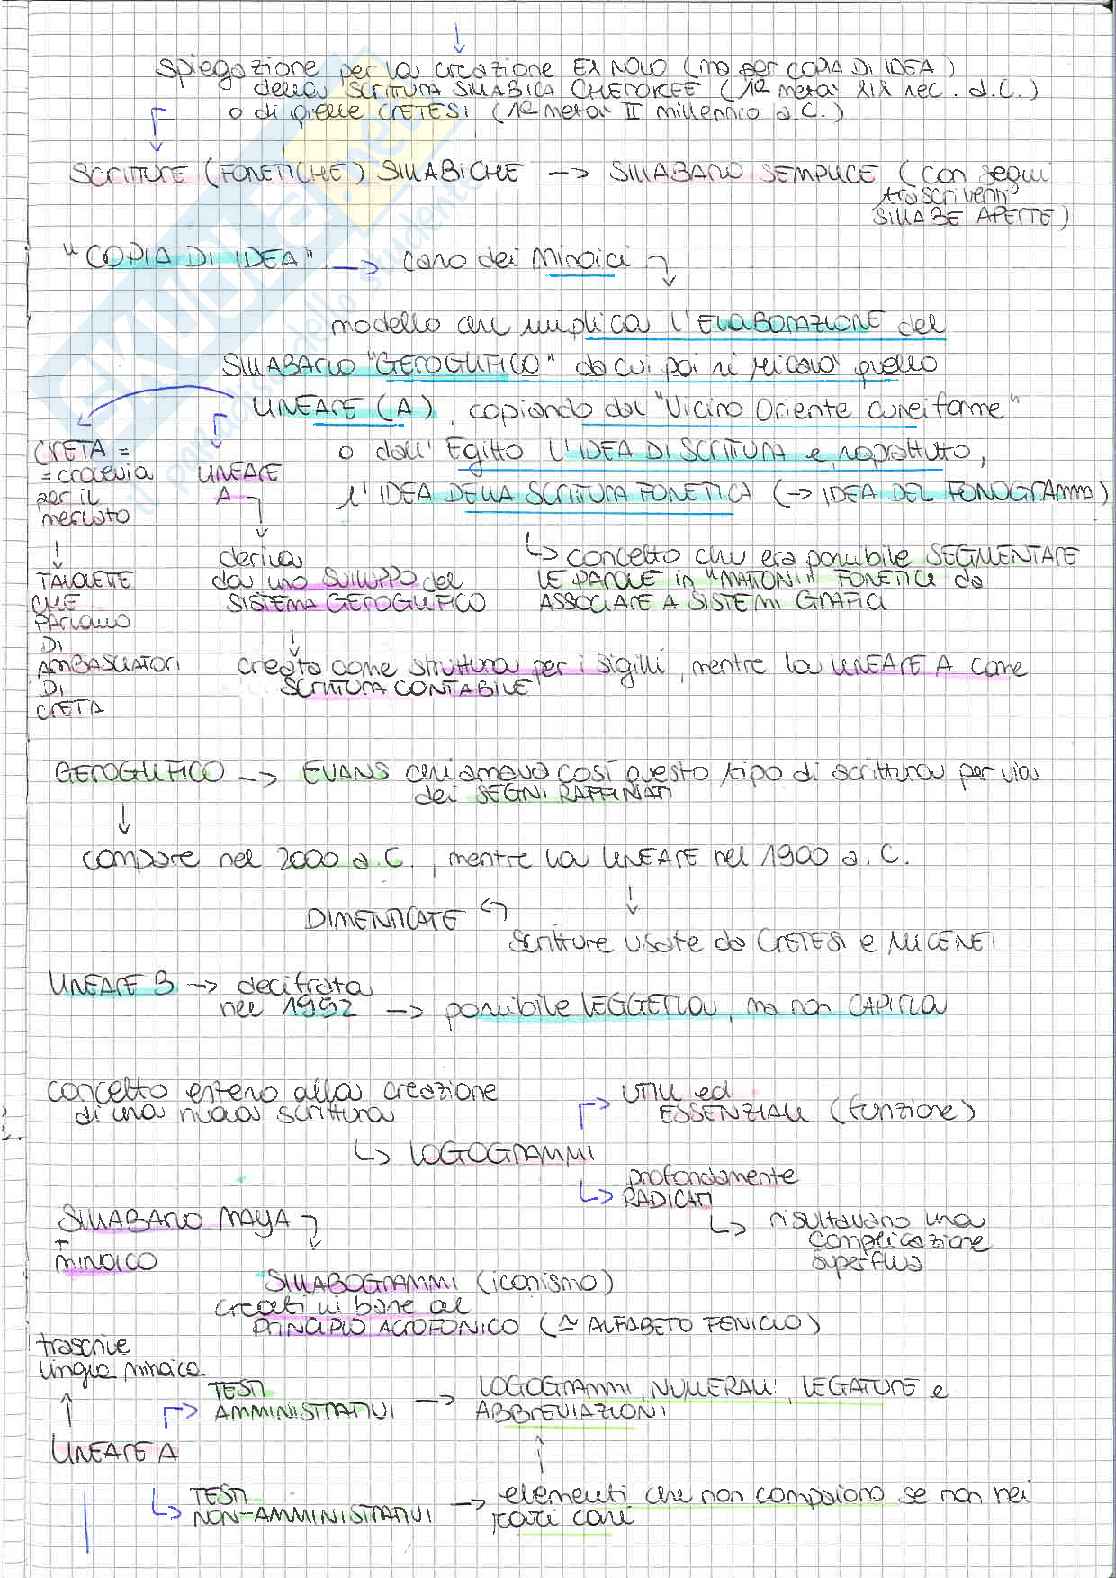 spiegazione per la creazione EX NOVO (no per COPIA DI IDEA)
della SCRITTURA SILLABICA CHEROKEE (1ª metà XIX sec. d.C.)
o di quelle CRETESI (1ª metà II millennio a.C.)
SCRITTURE (FONETICHE) SILLABICHE → SILLABARIO SEMPLICE (con segni
trascriventi
SILLABE APERTE)
"COPIA DI IDEA" → caso dei Minoici
modello che implica l'ELABORAZIONE del
SILLABARIO "GEROGLIFICO" da cui poi si ricavò quello
LINEARE (A), copiando dal "Vicino Oriente cuneiforme"
o dall'Egitto L'IDEA DI SCRITTURA e, soprattutto,
l'IDEA DELLA SCRITTURA FONETICA (→ IDEA DEL FONOGRAMMA)
CRETA =
= crocevia
per il
mercato
LINEARE
A
↓
TAVOLETTE
CHE
PARLANO
DI
AMBASCIATORI
DI
CRETA
deriva
da uno SVILUPPO del
SISTEMA GEROGLIFICO
↳ concetto che era possibile SEGMENTARE
LE PAROLE in "MATTONI" FONETICI da
ASSOCIARE A SISTEMI GRAFICI
creato come struttura per i sigilli, mentre la LINEARE A come
SCRITTURA CONTABILE
GEROGLIFICO → EVANS chiamava così questo tipo di scrittura per via
dei SEGNI RAFFINATI
↓
compare nel 2000 a.C., mentre la LINEARE nel 1900 a.C.
DIMENTICATE
scritture usate da CRETESI e MICENEI
LINEARE B → decifrata
nel 1952 → possibile LEGGERLA, ma non CAPIRLA
concetto esteso alla creazione
di una nuova scrittura
UTILI ed
ESSENZIALI (funzione)
↳ LOGOGRAMMI
profondamente
RADICATI
↳ risultavano una
complicazione
superflua
SILLABARIO MAYA
+
MINOICO
SILLABOGRAMMI (iconismo)
creati in base al
PRINCIPIO ACROFONICO (≃ ALFABETO FENICIO)
trascrive
lingua minoica
TESTI
AMMINISTRATIVI → LOGOGRAMMI, NUMERALI, LEGATURE e
ABBREVIAZIONI
LINEARE A
↳ TESTI
NON-AMMINISTRATIVI → elementi che non compaiono se non nei
rari casi